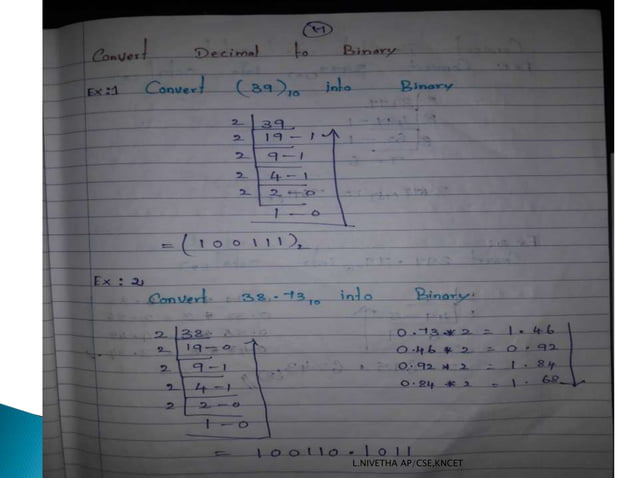 14
Convert Decimal to Binary
Ex:1 Convert (39)10 into Binary
2 39
2 19 - 1
2 9 - 1
2 4 - 1
2 2 - 0
1 - 0
= (100111)2
Ex : 2
Convert 38.73 10 into Binary.
2 38
2 19 - 0
2 9 - 1
2 4 - 1
2 2 - 0
1 - 0
0.73 * 2 = 1.46
0.46 * 2 = 0.92
0.92 * 2 = 1.84
0.84 * 2 = 1.68
= 100110.1011
L.NIVETHA AP/CSE,KNCET